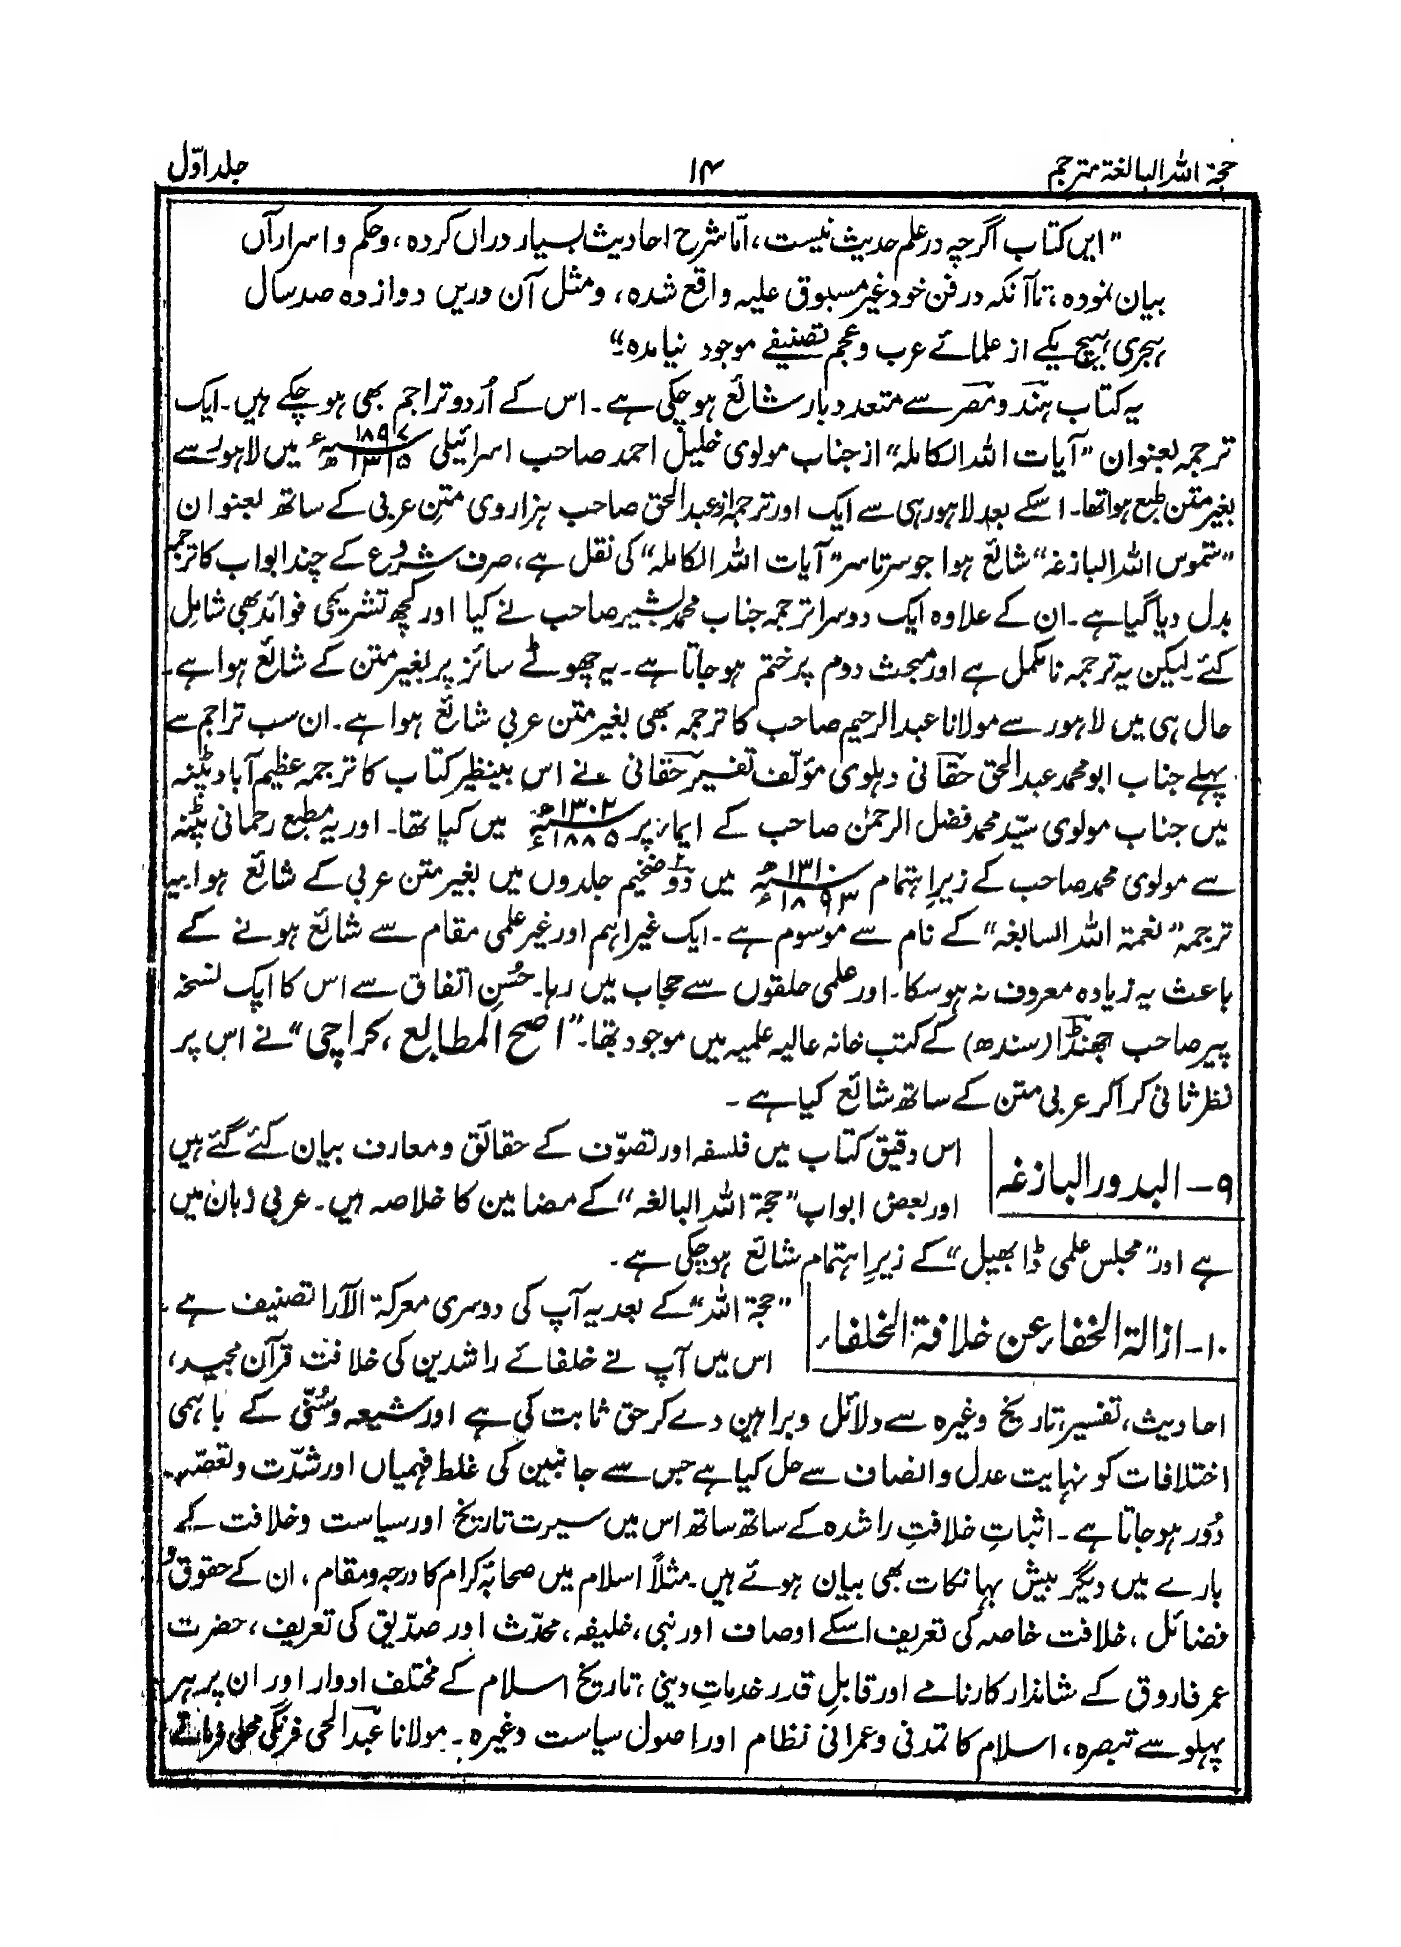 حجۃ اللہ البالغۃ مترجم
۱۴
جلد اوّل
”ایں کتاب اگرچہ در علم حدیث نیست، امّا شرح احادیث بسیار دراں کردہ، و حکم و اسرار آں
بیان نمودہ، تا آنکہ در فن خود غیر مسبوق علیہ واقع شدہ، و مثل آن دریں دوازدہ صد سال
ہجری ہیچ یکے از علمائے عرب و عجم تصنیفے موجود نیامدہ“
یہ کتاب ہند و مصر سے متعدد بار شائع ہو چکی ہے۔ اس کے اُردو تراجم بھی ہو چکے ہیں۔ ایک
ترجمہ بعنوان ”آیات اللہ الکاملہ“ از جناب مولوی خلیل احمد صاحب اسرائیلی ۱۸۹۷ء ۱۳۱۵ھ میں لاہور سے
بغیر متن طبع ہوا تھا۔ اسکے بعد لاہور ہی سے ایک اور ترجمہ از عبدالحق صاحب ہزاروی متنِ عربی کے ساتھ بعنوان
”شموس اللہ البازغہ“ شائع ہوا جو سرتاسر ”آیات اللہ الکاملہ“ کی نقل ہے، صرف شروع کے چند ابواب کا ترجمہ
بدل دیا گیا ہے۔ ان کے علاوہ ایک دوسرا ترجمہ جناب محمد بشیر صاحب نے کیا اور کچھ تشریحی فوائد بھی شامل
کئے۔ لیکن یہ ترجمہ نامکمل ہے اور مبحث دوم پر ختم ہو جاتا ہے۔ یہ چھوٹے سائز پر بغیر متن کے شائع ہوا ہے۔
حال ہی میں لاہور سے مولانا عبدالرحیم صاحب کا ترجمہ بھی بغیر متن عربی شائع ہوا ہے۔ ان سب تراجم سے
پہلے جناب ابو محمد عبدالحق حقانی دہلوی مؤلّف تفسیر حقانی نے اس بینظیر کتاب کا ترجمہ عظیم آباد پٹنہ
میں جناب مولوی سیّد محمد فضل الرحمٰن صاحب کے ایماء پر ۱۳۰۲ھ ۱۸۸۵ء میں کیا تھا۔ اور یہ مطبع رحمانی پٹنہ
سے مولوی محمد صاحب کے زیرِ اہتمام ۱۳۱۰ھ ۱۸۹۳ء میں دو ضخیم جلدوں میں بغیر متن عربی کے شائع ہوا۔ یہ
ترجمہ ”نعمۃ اللہ السابغہ“ کے نام سے موسوم ہے۔ ایک غیر اہم اور غیر علمی مقام سے شائع ہونے کے
باعث یہ زیادہ معروف نہ ہو سکا۔ اور علمی حلقوں سے حجاب میں رہا۔ حُسنِ اتفاق سے اس کا ایک نسخہ
پیر صاحب جھنڈا (سندھ) کے کتب خانہ عالیہ علمیہ میں موجود تھا۔ ”اصح المطابع، کراچی“ نے اس پر
نظر ثانی کرا کر عربی متن کے ساتھ شائع کیا ہے۔
۹۔ البدور البازغہ
اس دقیق کتاب میں فلسفہ اور تصوّف کے حقائق و معارف بیان کئے گئے ہیں
اور بعض ابواب ”حجۃ اللہ البالغہ“ کے مضامین کا خلاصہ ہیں۔ عربی زبان میں
ہے اور ”مجلس علمی ڈابھیل“ کے زیرِ اہتمام شائع ہو چکی ہے۔
۱۰۔ ازالۃ الخفاء عن خلافۃ الخلفاء
”حجۃ اللہ“ کے بعد یہ آپ کی دوسری معرکۃ الآرا تصنیف ہے۔
اس میں آپ نے خلفائے راشدین کی خلافت قرآن مجید،
احادیث، تفسیر، تاریخ وغیرہ سے دلائل و براہین دے کر حق ثابت کی ہے اور شیعہ و سُنّی کے باہمی
اختلافات کو نہایت عدل و انصاف سے حل کیا ہے جس سے جانبین کی غلط فہمیاں اور شدّت و تعصّب
دُور ہو جاتا ہے۔ اثباتِ خلافتِ راشدہ کے ساتھ ساتھ اس میں سیرت تاریخ اور سیاست و خلافت کے
بارے میں دیگر بیش بہا نکات بھی بیان ہوئے ہیں۔ مثلاً اسلام میں صحابۂ کرام کا درجہ و مقام، ان کے حقوق و
فضائل، خلافت خاصہ کی تعریف اسکے اوصاف اور نبی، خلیفہ، محدّث اور صدّیق کی تعریف، حضرت
عمر فاروق کے شاندار کارنامے اور قابلِ قدر خدماتِ دینی، تاریخ اسلام کے مختلف ادوار اور ان پر ہر
پہلو سے تبصرہ، اسلام کا تمدنی و عمرانی نظام اور اصول سیاست وغیرہ۔ مولانا عبدالحی فرنگی محلی فرماتے